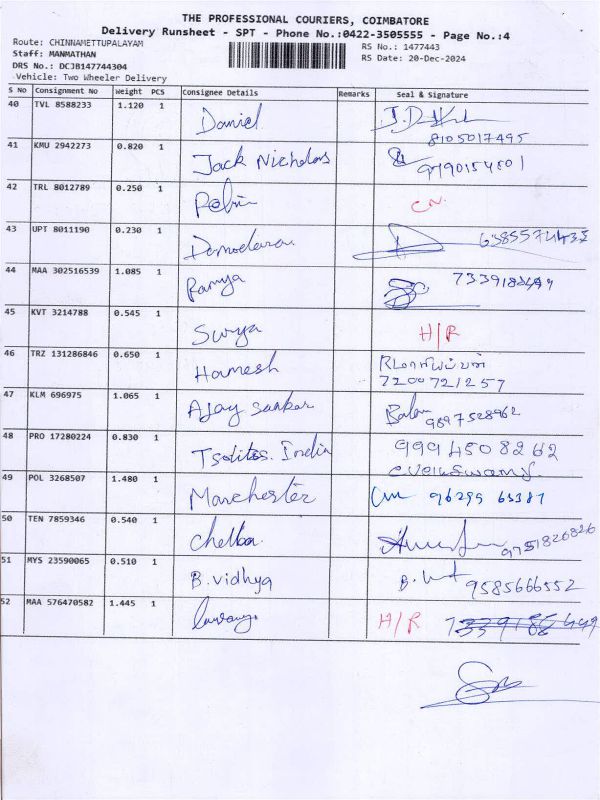 THE PROFESSIONAL COURIERS, COIMBATORE
Delivery Runsheet - SPT - Phone No.:0422-3505555 - Page No.:4
Route: CHINNAMETTUPALAYAM RS No.: 1477443
Staff: MANMATHAN RS Date: 20-Dec-2024
DRS No.: DCJB147744304
Vehicle: Two Wheeler Delivery
S No Consignment No Weight PCS Consignee Details Remarks Seal & Signature
40 TVL 8588233 1.120 1 Daniel
8105017495
41 KMU 2942273 0.820 1 Jack Nicholas
42 TRL 8012789 0.250 1 Robin CN.
43 UPT 8011190 0.230 1 Damodara.
44 MAA 302516539 1.085 1 Ramya
45 KVT 3214788 0.545 1 Surya H/R
46 TRZ 131286846 0.650 1 Hamesh
7200721257
47 KLM 696975 1.065 1 Ajay Sankar Balan 9597528962
48 PRO 17280224 0.830 1 Tsolitos. India 9994508262
49 POL 3268507 1.480 1 Manchester 96299 63381
50 TEN 7859346 0.540 1 Chella. 9751826826
51 MYS 23590065 0.510 1 B. vidhya 9585666552
52 MAA 576470582 1.445 1 H/R